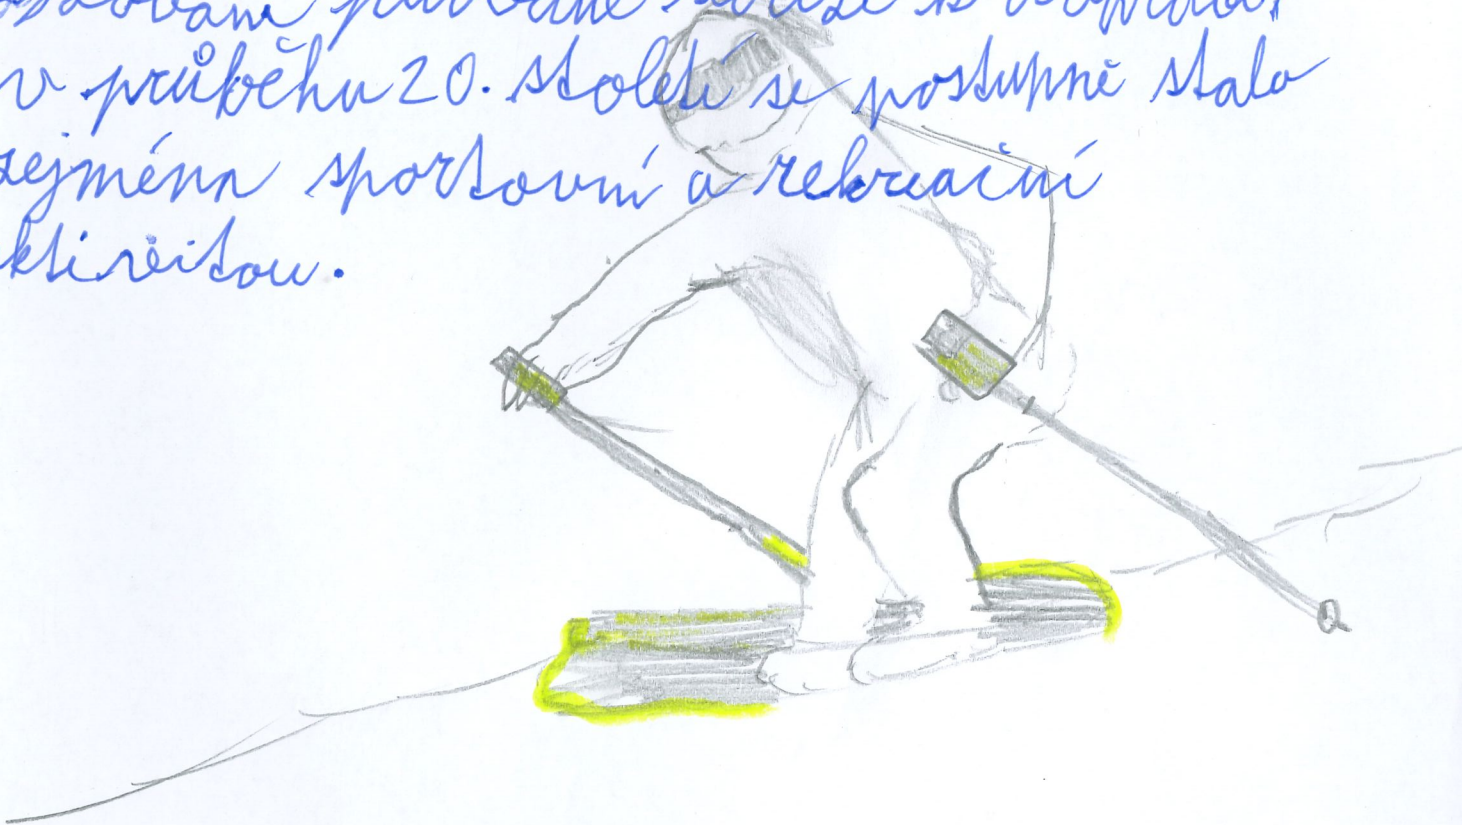 původně
v průběhu 20. století se postupně stalo
zejména sportovní a rekreační
ktivitou.